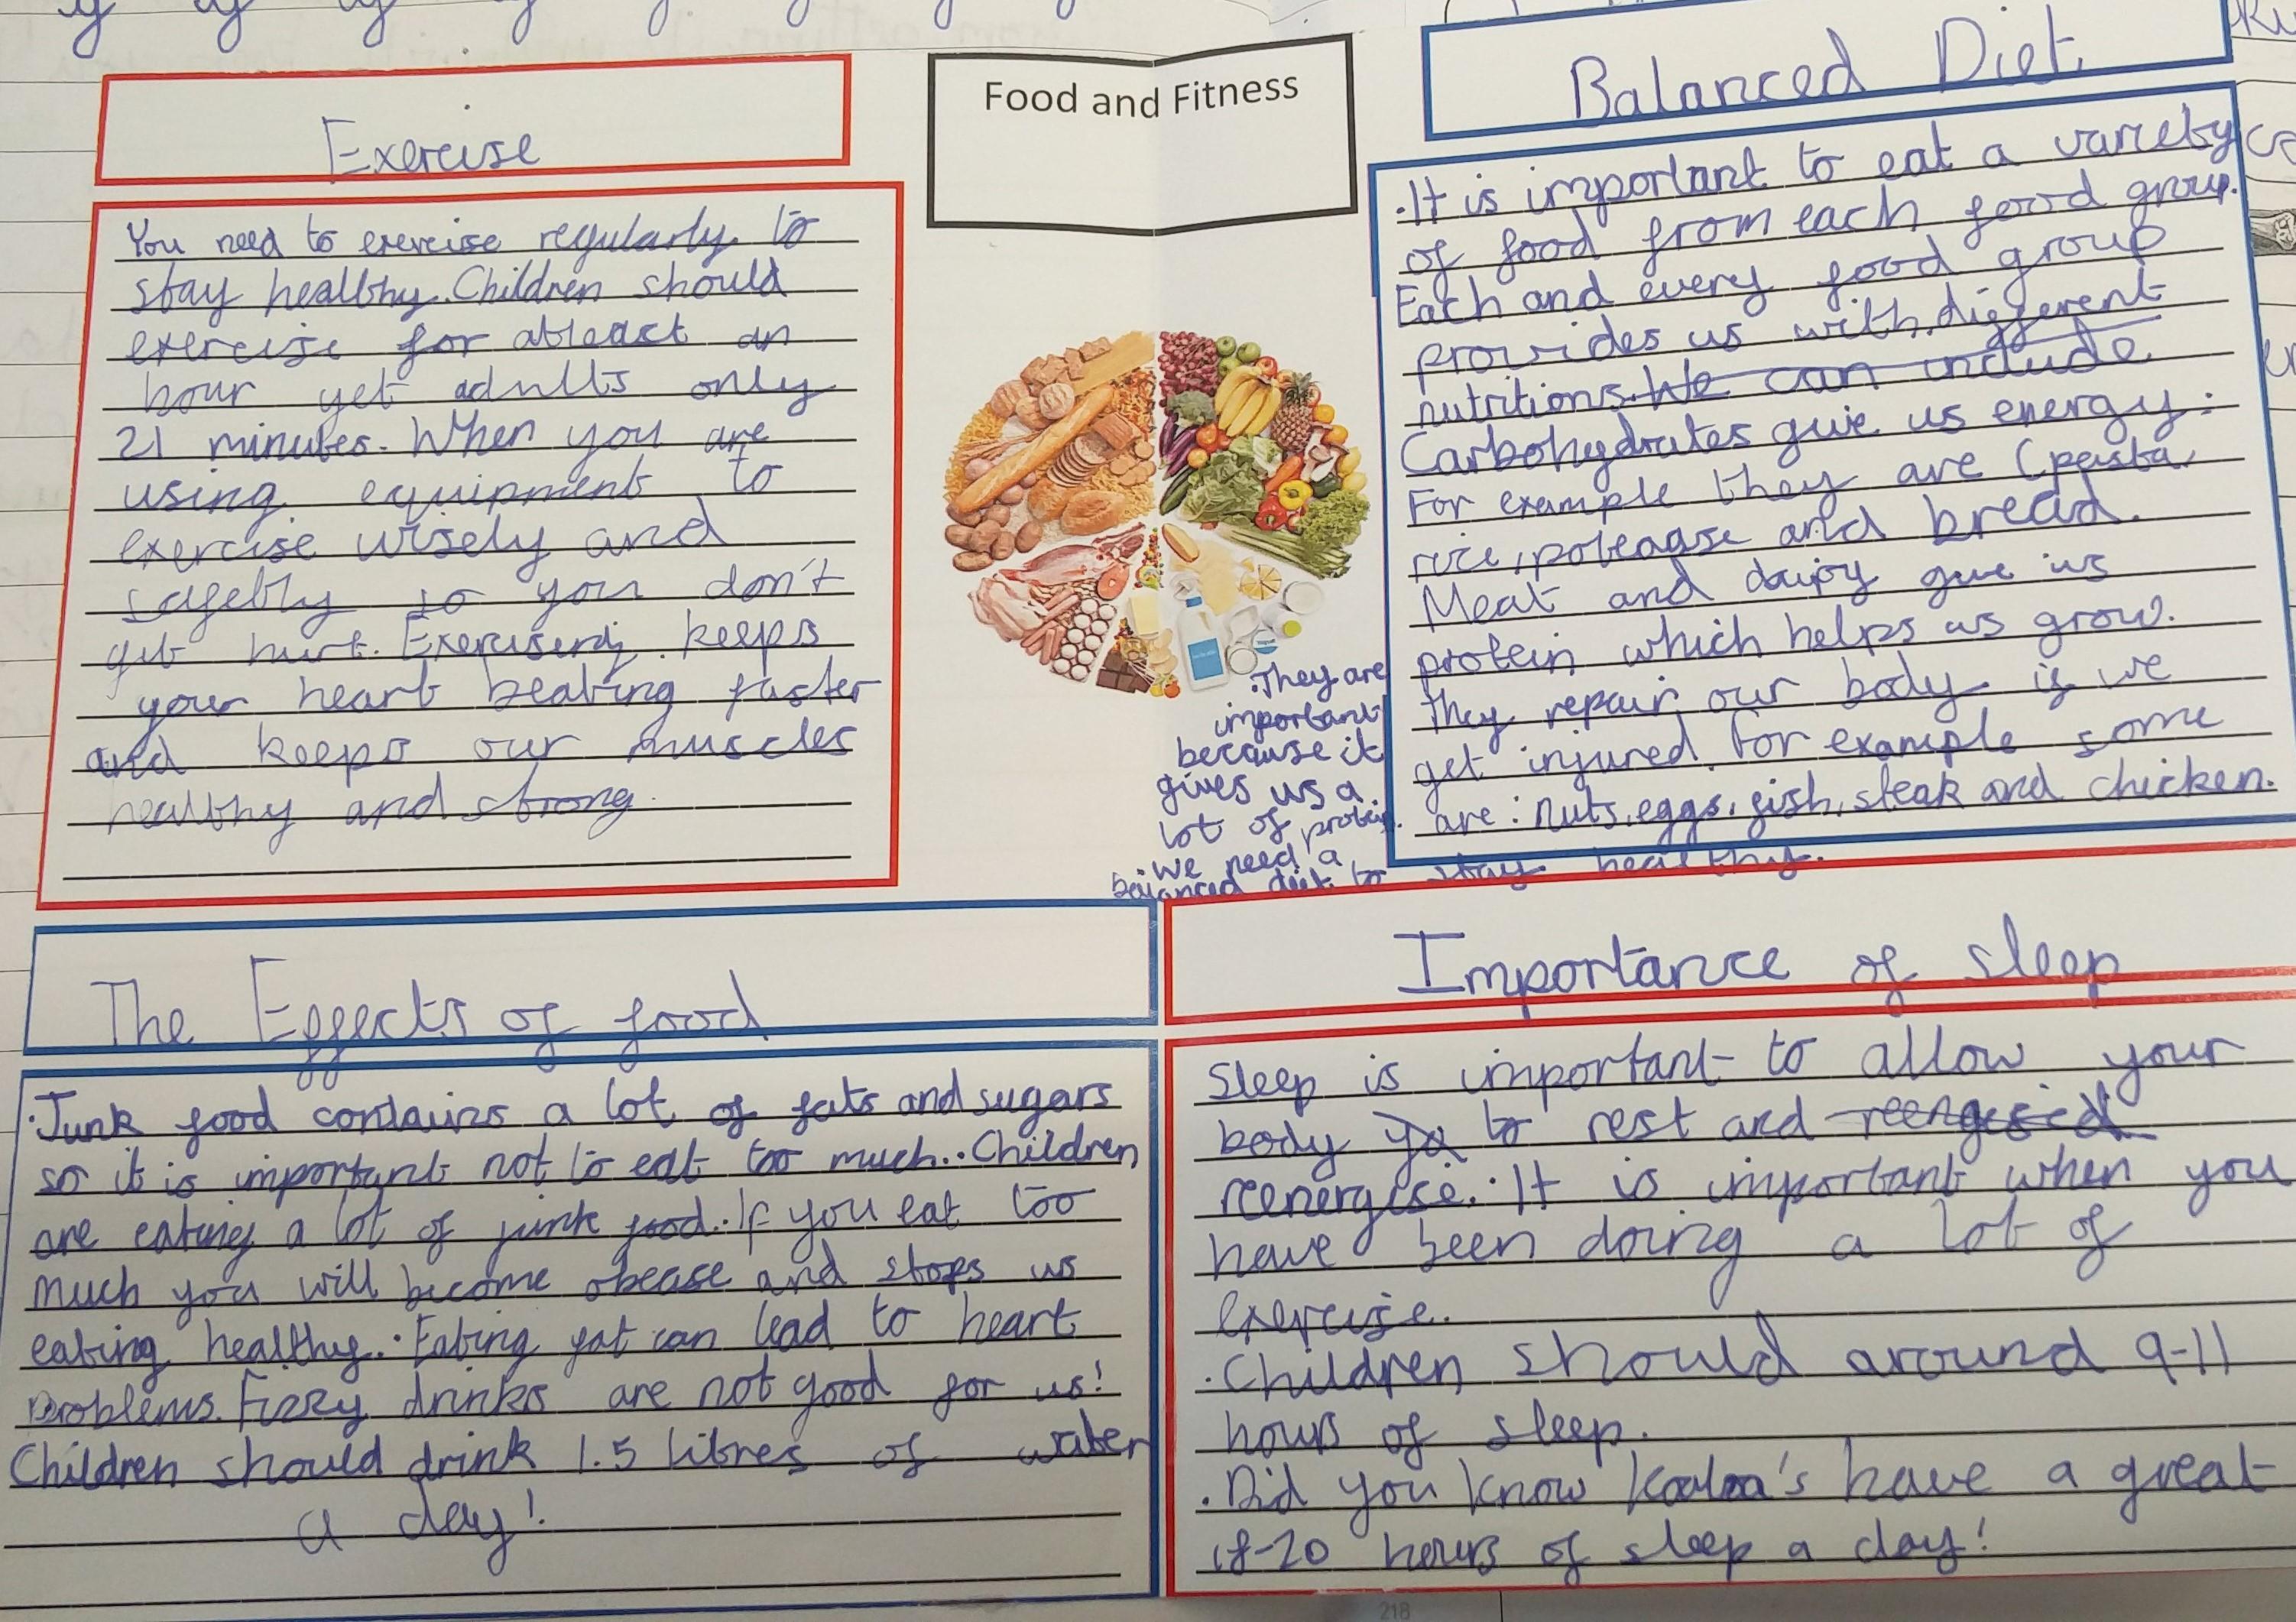 Food and Fitness
Exercise
You need to exercise regularly to
stay healthy. Children should
exercise for atleast an
hour yet adults only
21 minutes. When you are
using equipment to
exercise wisely and
safetly so you don't
get hurt. Exercising keeps
your heart beating faster
and keeps our muscles
healthy and strong.
Balanced Diet.
·It is important to eat a variety
of food from each food group.
Each and every food group
provides us with different
nutritions. We can include
Carbohydrates give us energy:
For example they are (pasta,
rice, and bread.
Meat and dairy give us
protein which helps us grow.
They repair our body if we
get injured. For example some
are: nuts, eggs, fish, steak and chicken.
·They are
important
because it
gives us a
lot of protein.
·We need a
balanced diet to stay healthy.
The Effects of food
·Junk food contains a lot of fats and sugars
so it is important not to eat too much.·Children
are eating a lot of junk food.·If you eat too
much you will become obease and stops us
eating healthy.·Eating fat can lead to heart
problems. Fizzy drinks are not good for us!
Children should drink 1.5 litres of water
a day!
Importance of sleep
Sleep is important to allow your
body to rest and
reenergise.·It is important when you
have been doing a lot of
exercise.
·Children should around 9-11
hours of sleep.
·Did you know Koala's have a great
18-20 hours of sleep a day!
218